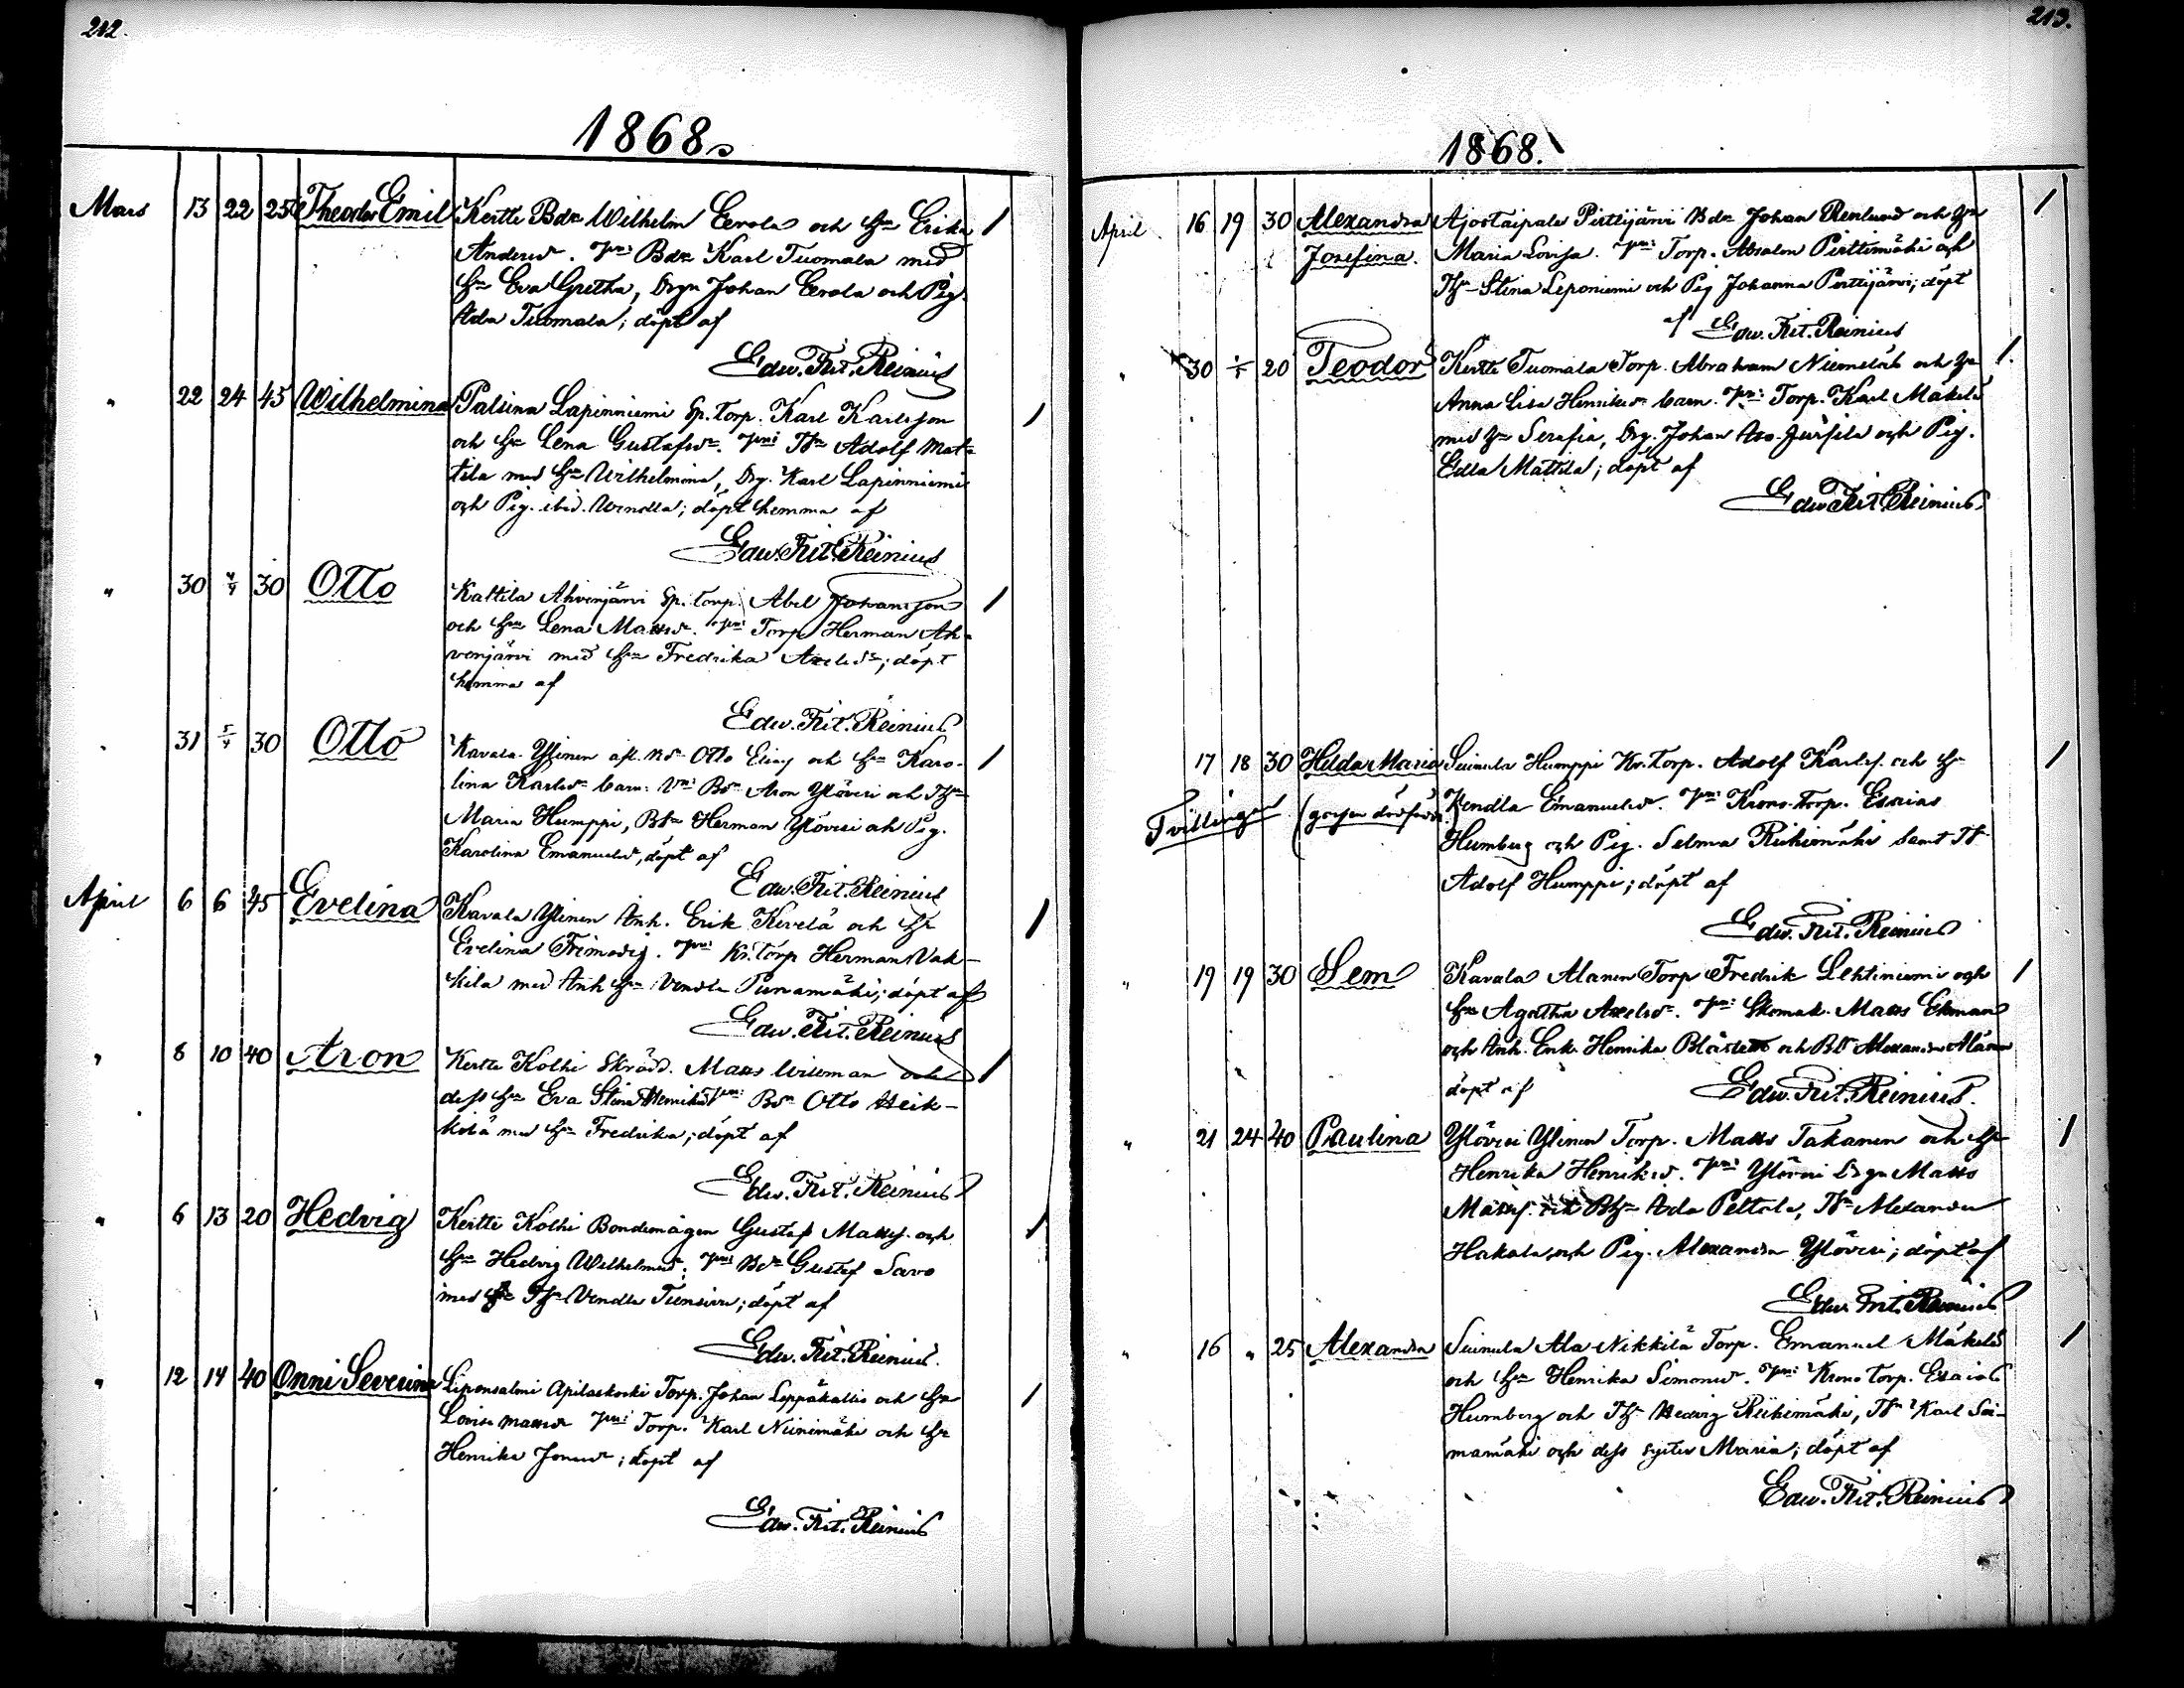 212.
1868.
Mars 13 22 25 Theodor Emil Kertte Bdn Wilhelm Eerola och Hn Erika
Andersd. Vni Bdn Karl Tuomala med
Hn Eva Gretha, Drgn Johan Eerola och Pig.
Ada Tuomala; döpt af
Edw. Frit. Reinius
" 22 24 45 Wilhelmina Palsina Lapinniemi Sp. Torp. Karl Karlsson
och Hn Lena Gustafsdr. Vni Tn Adolf Mat-
tila med Hn Wilhelmina, Drg. Karl Lapinniemi
och Pig. ibid. Wendla; döpt hemma af
Edw. Frit. Reinius
" 30 4/4 30 Otto Kattila Ahvenjärvi Sp. torp. Abel Johansson
och Hn Lena Mattsdr. Vni Torp Herman Ah-
venjärvi med Hn Fredrika Axelsdr; döpt
hemma af
Edw. Frit. Reinius
" 31 5/4 30 Otto Kavala Ylinen afl. Bdn Otto Eliasj och Hn Karo-
lina Karlsdr barn: Vni Bdn Aron Ylöveri och Hn
Maria Humppi, Bdn Herman Ylöveri och Pig.
Karolina Emanuelsd, döpt af
Edw. Frit. Reinius
April 6 6 45 Evelina Kavala Ylinen Inh. Erik Kivelä och Hr
Evelina Vni Kr. Torp Herman Vak-
kila med Inh Hn Vendla Punamäki; döpt af
Edw. Frit. Reinius
" 8 10 40 Aron Kertte Kolhi Skrädd. Matts Wireman och
dess Hn Eva Stina Henriksd Vni Bdn Otto Heik-
kilä med Hn Fredrika; döpt af
Edw. Frit. Reinius
" 6 13 20 Hedvig Kertte Kolhi Bondemågen Gustaf Mattsj. och
Hn Hedvig Wilhelmsd. Vni Bdn Gustaf Savo
med Hn Vendla; döpt af
Edw. Frit. Reinius.
" 12 14 40 Onni Severin Liponsalmi Apilaskoski Torp. Johan Leppäkallio och Hn
Lovisa Mattsdr Vni Torp. Karl Niinimäki och Hr
Henrika Jonasdr; döpt af
Edw. Frit. Reinius
213.
1868.
April 16 19 30 Alexandra Ajostaipale Pirttijärvi Bdn Johan Renlund och Hn
Josefina. Maria Lovisa. Vni Torp. Absalon Pirttimäki och
Hn Stina Leponiemi och Pig Johanna Pirttijärvi; döpt
af Edw. Frit. Reinius
" 30 1/5 20 Teodor Kertte Tuomala Torp. Abraham Niemelä och Hn
Anna Lisa Henriksdr barn. Vni Torp. Karl Mäkelä
med Hn Serafia, Drg. Johan och Pig.
Edla Mattila; döpt af
Edw. Frit. Reinius
17 18 30 Hilda Maria Suinula Humppi Kr. Torp. Adolf Karlsj. och Hr
Tvillingar Vendla Emanuelsdr. Vni Krono Torp. Esaias
Humberg och Pig. Selma Riihimäki samt Tn
Adolf Humppi; döpt af
Edw. Frit. Reinius
" 19 19 30 Sem Kavala Alanen Torp Fredrik Lehtiniemi och
Hn Agatha Axelsdr. Vni Skomak. Matts Ekman
och Inh. Enk. Henrika och Alexandra Alanen
döpt af Edw. Frit. Reinius.
" 21 24 40 Paulina Ylöveri Ylinen Torp. Matts Takanen och Hr
Henrika Henriksd. Vni Ylöveri Drgn Matts
Mattsj. Ada Peltola, Tn Alexander
Hakala och Pig. Alexandra Ylöveri; döpt af
Edw. Frit. Reinius
" 16 " 25 Alexandra Suinula Ala Nikkilä Torp. Emanuel Mäkelä
och Hn Henrika Simonsd. Vni Krono Torp. Esaias
Humberg och Hedvig Riihimäki, Tn Karl Soi-
mamäki och dess syster Maria; döpt af
Edw. Frit. Reinius